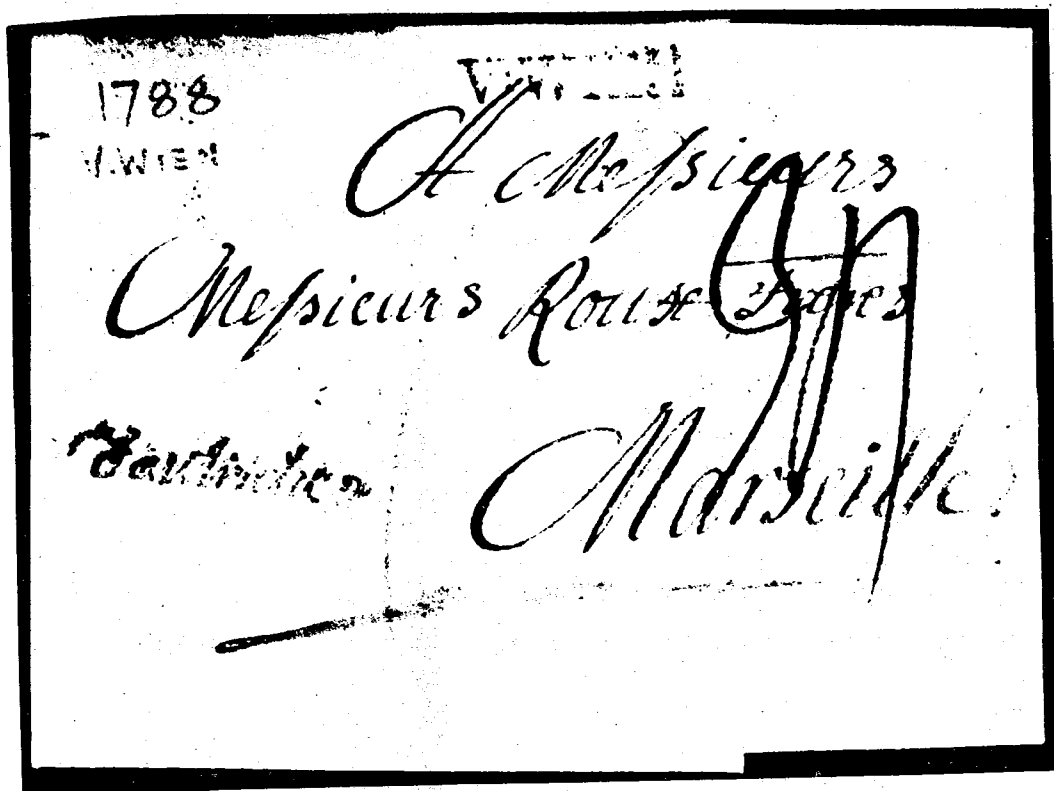 1788
V.WIEN
A Meſsieurs
Meſsieurs Roux Freres
Marseille.